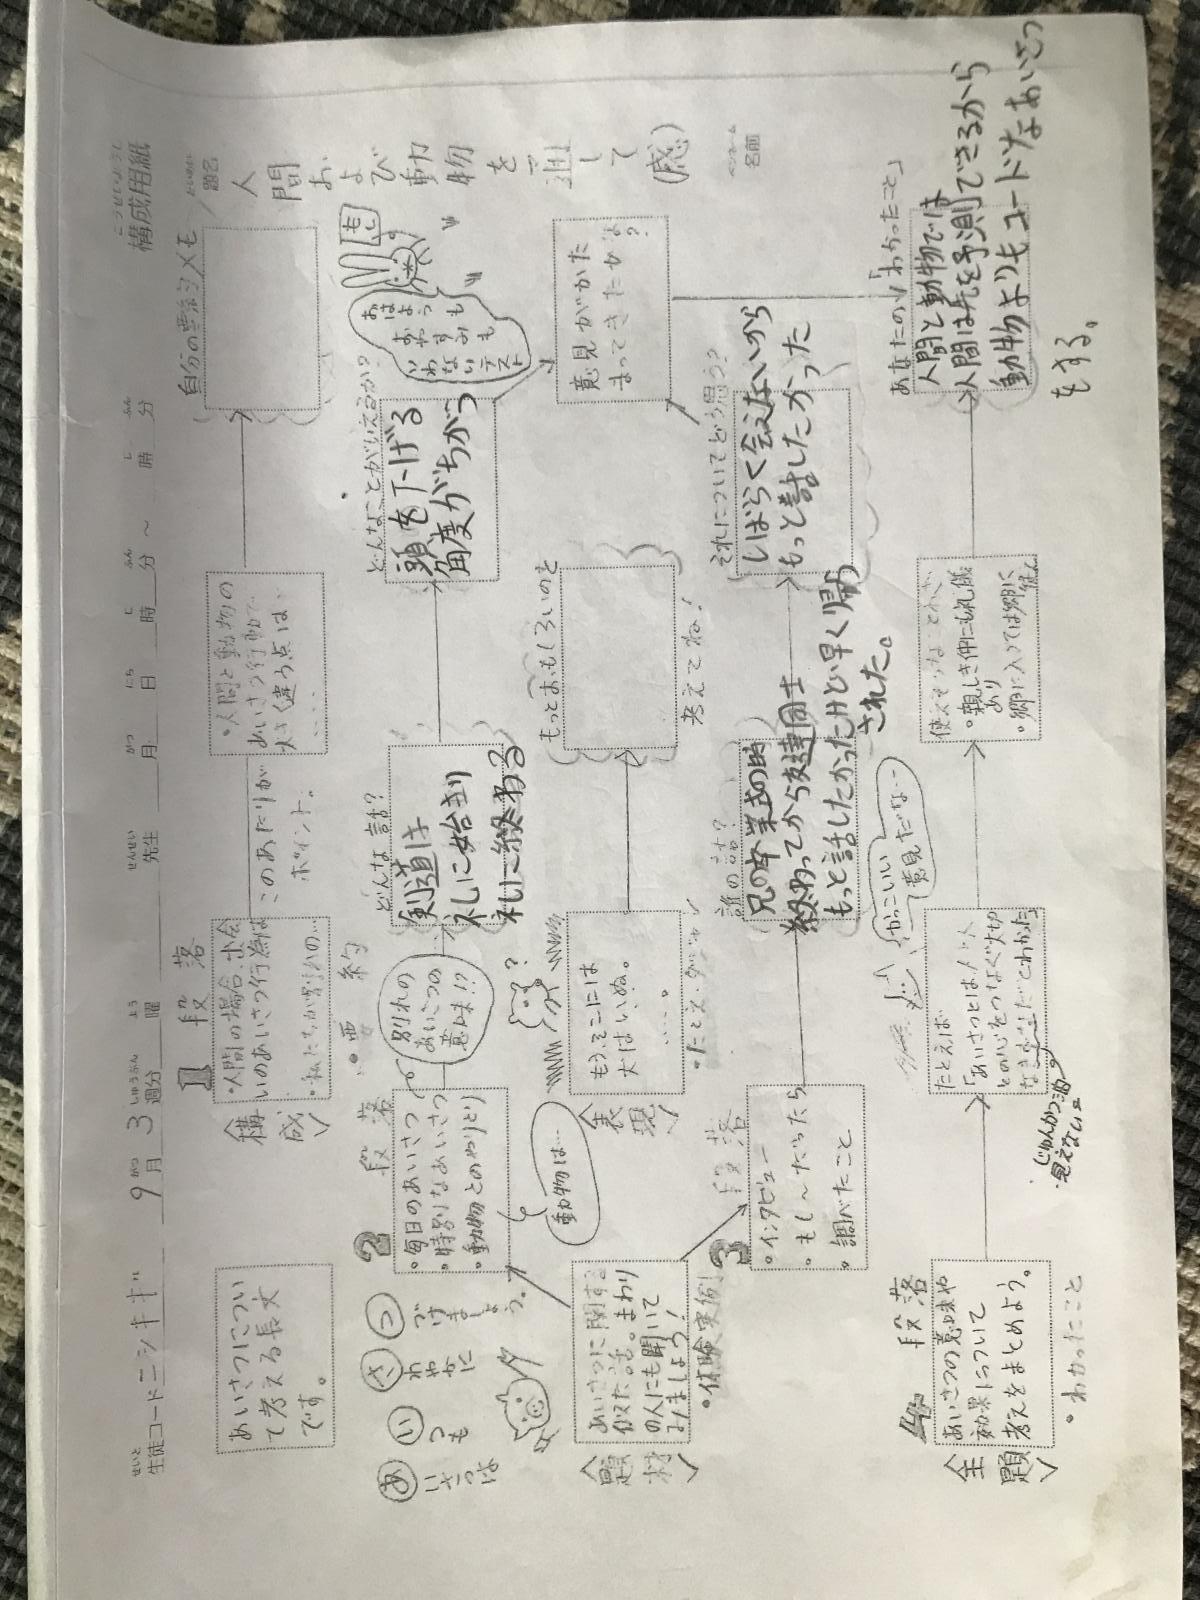 構成用紙
こうせいようし
生徒コード ニシキギ 9月 3週分 曜 先生 月 日 時 分 ～ 時 分
題名
人間および動物を通して(感)
ペンネーム
名前
自分の要約メモ
あいさつについ
て考える長文
です。
1段落
〈構成〉
・人間の場合、出会
いのあいさつ行為は
・私たちが別れの…
このあたりが
ポイント。
・人間と動物の
あいさつ行動で
大きく違う点は…
・要約
あ いさつは
い つも
さ わやかに
つ づけましょう。
2段落
・毎日のあいさつ
・特別なあいさつ
・動物とのやりとり
動物は…
別れの
あいさつの
意味!?
どんな話?
剣道は
礼に始まり
礼に終わる
どんなことがいえるか?
頭を下げる
角度がちがう
おはようも
おやすみも
いわない
テスト
〈題材〉
あいさつに関する
似た話。まわり
の人にも聞いて
みましょう!
・体験実例
〈表現〉
もうそこには
犬はいぬ。
・・・・。
もっとおもしろいのを
考えてね!
意見がかた
まってきたかな?
3段落
・インタビュー
・もし〜だったら
・調べたこと
誰の話?
兄の卒業式の時
終わってから友達同士
もっと話したかったけど早く帰
された。
それについてどう思う?
しばらく会えないから
もっと話したかった
4段落
〈主題〉
あいさつの意味や
効果について
考えをまとめよう。
・わかったこと
たとえば
「あいさつとは人と人
との心をつなぐ大切
だとわかった」
かっこいい
意見だな…
・親しき仲にも礼儀
あり
・郷に入っては郷に
従え
あなたの「わかったこと」
人間と動物では
人間は先を予測できるから
動物よりもユードなあいさつ
をする。